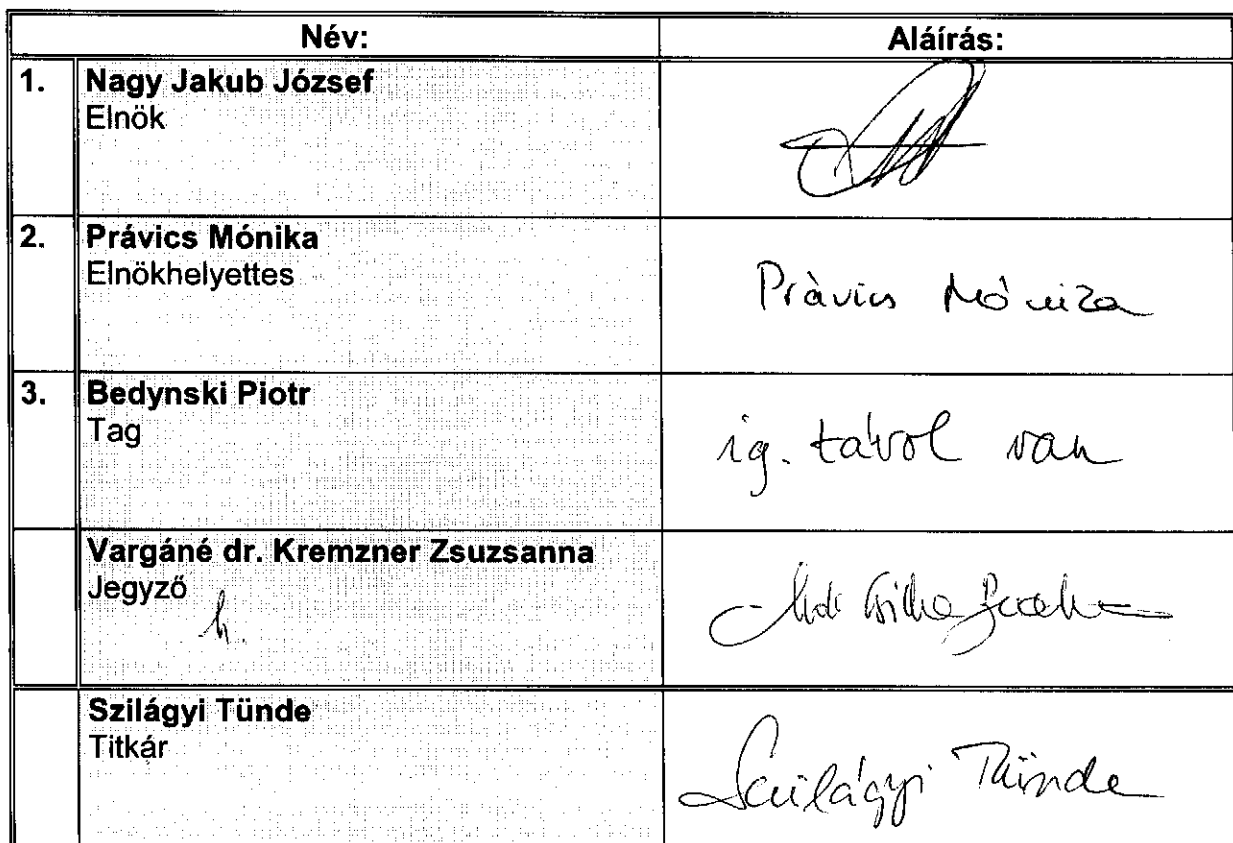 Név: Aláírás:
1. Nagy Jakub József
Elnök
2. Právics Mónika
Elnökhelyettes
Právics Mónika
3. Bedynski Piotr
Tag
ig. távol van
Vargáné dr. Kremzner Zsuzsanna
Jegyző
h.
Szilágyi Tünde
Titkár
Szilágyi Tünde